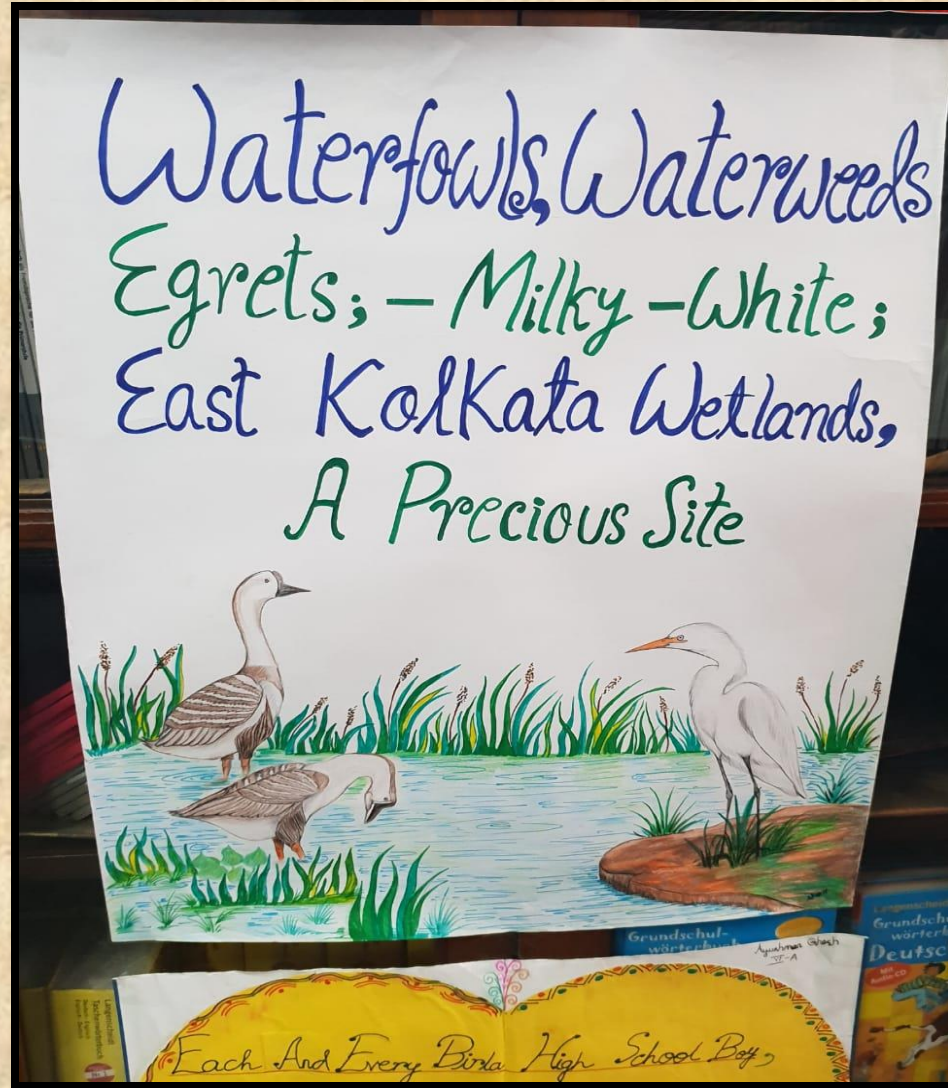 Waterfowls, Waterweeds
Egrets; – Milky – White;
East Kolkata Wetlands,
A Precious Site
Grundschul-
wörterbuch
Ayushman Ghosh
VI-A
Mit
Audio-CD
Langenscheidt
Taschenwörterbuch
Each And Every Birla High School Boy,